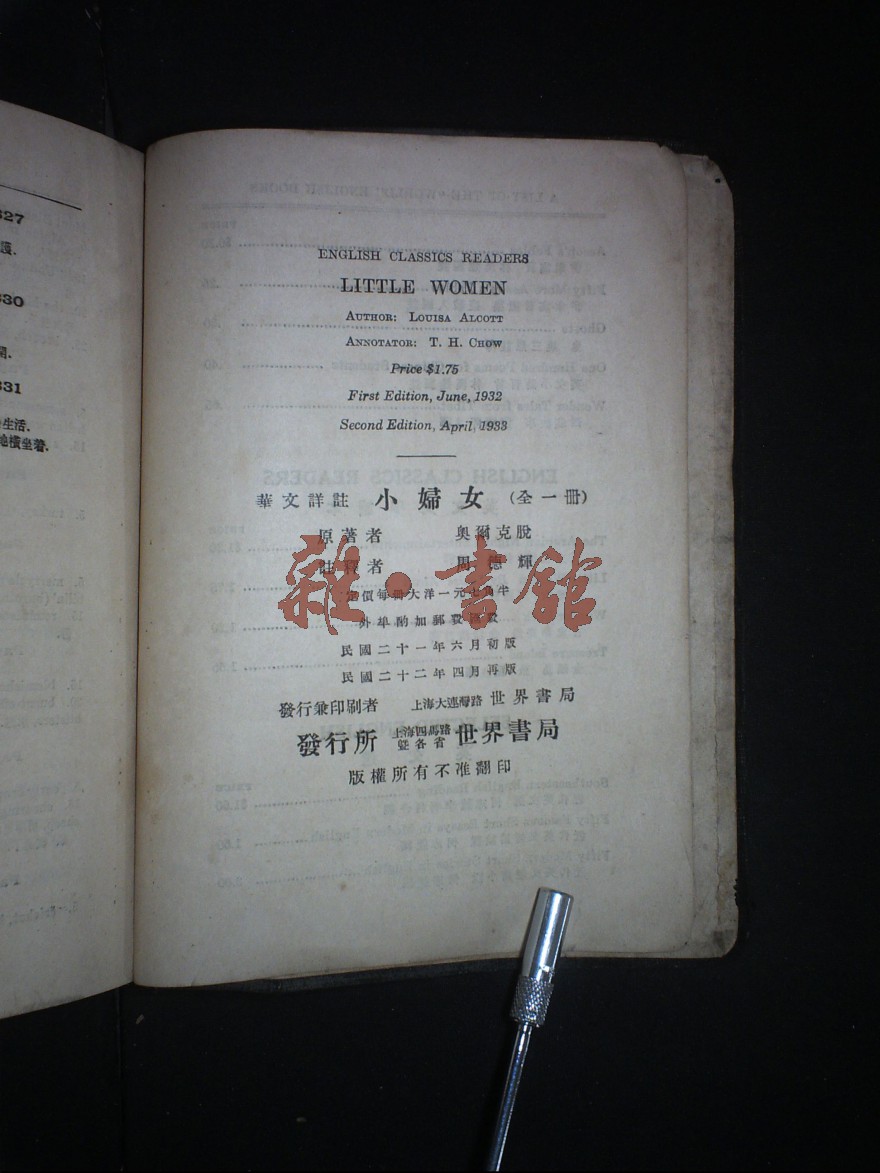 327
護.
330
331
生活.
地橫坐着.
ENGLISH CLASSICS READERS
LITTLE WOMEN
AUTHOR: LOUISA ALCOTT
ANNOTATOR: T. H. CHOW
Price $1.75
First Edition, June, 1932
Second Edition, April, 1933
華文詳註 小婦女 (全一册)
原著者 奧爾克脫
註釋者 周德輝
定價每冊大洋一元七角半
外埠酌加郵費匯費
民國二十一年六月初版
民國二十二年四月再版
發行兼印刷者 上海大連灣路 世界書局
發行所 上海四馬路暨各省 世界書局
版權所有不准翻印
雜·書館